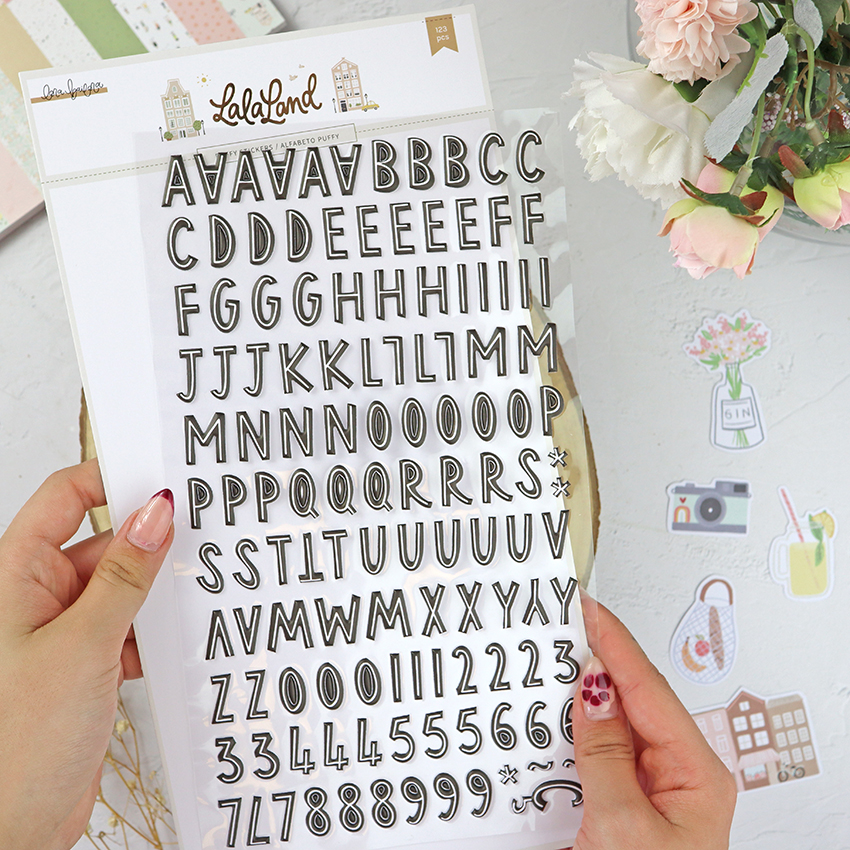 123
pcs
LalaLand
STICKERS / ALFABETO PUFFY
AAAAAABBBCC
CDDDEEEEEFF
FGGGHHHIIIII
JJJKKLLLLMM
MNNNOOOOOP
PPPQQQRRRS**
SSTTTUUUUUV
VVWWWXXYYY
ZZ0001112223
33444555666
777888999*
GIN